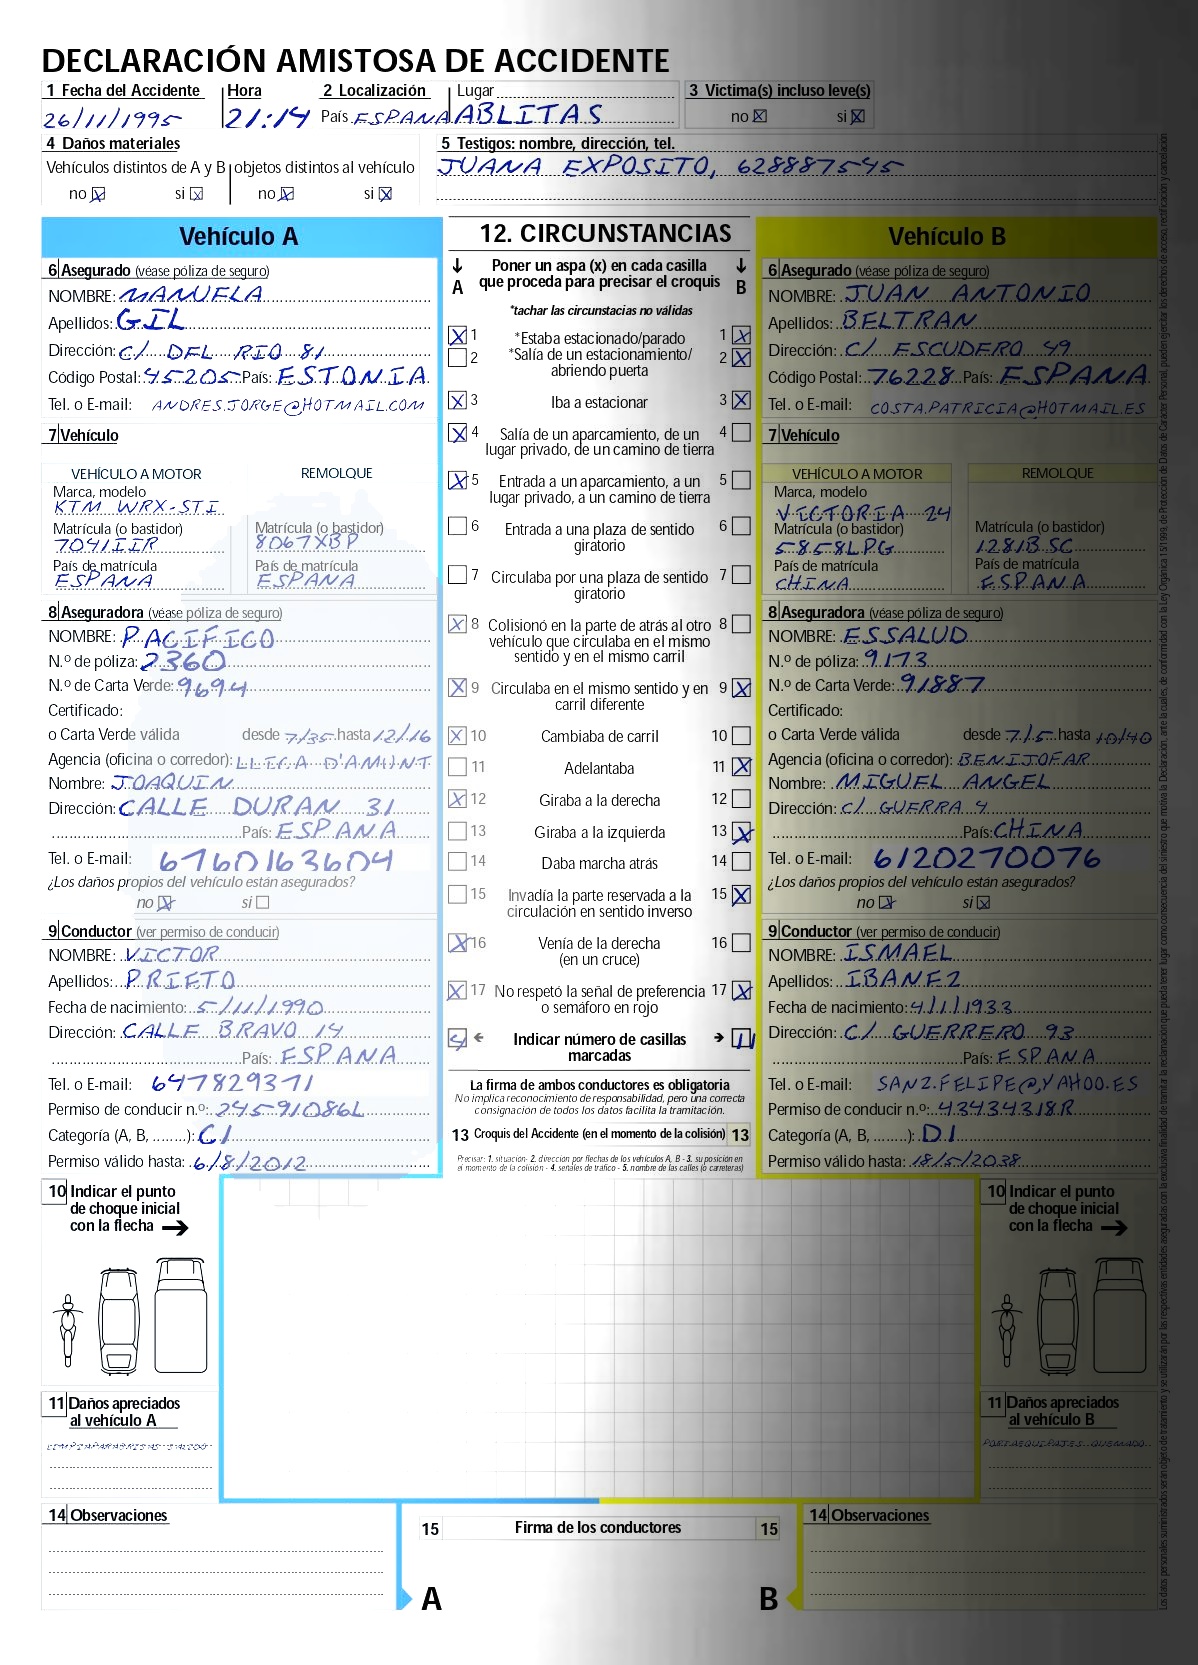 DECLARACIÓN AMISTOSA DE ACCIDENTE
1 Fecha del Accidente Hora 2 Localización Lugar 3 Victima(s) incluso leve(s)
26/11/1995 21:14 País ESPANA ABLITAS no si
4 Daños materiales 5 Testigos: nombre, dirección, tel.
Vehículos distintos de A y B objetos distintos al vehículo JUANA EXPOSITO, 628887545
no si no si
Vehículo A
6 Asegurado (véase póliza de seguro)
NOMBRE: MANUELA
Apellidos: GIL
Dirección: C/ DEL RIO 81
Código Postal: 45205 País: ESTONIA
Tel. o E-mail: ANDRES.JORGE@HOTMAIL.COM
7 Vehículo
VEHÍCULO A MOTOR REMOLQUE
Marca, modelo
KTM WRX-STI
Matrícula (o bastidor) Matrícula (o bastidor)
7041IIR 8067XBP
País de matrícula País de matrícula
ESPANA ESPANA
8 Aseguradora (véase póliza de seguro)
NOMBRE: PACIFICO
N.º de póliza: 2360
N.º de Carta Verde: 9694
Certificado:
o Carta Verde válida desde 7/35 hasta 12/16
Agencia (oficina o corredor): LLICA D'AMUNT
Nombre: JOAQUIN
Dirección: CALLE DURAN 31
País: ESPANA
Tel. o E-mail: 6760163604
¿Los daños propios del vehículo están asegurados?
no si
9 Conductor (ver permiso de conducir)
NOMBRE: VICTOR
Apellidos: PRIETO
Fecha de nacimiento: 5/11/1990
Dirección: CALLE BRAVO 14
País: ESPANA
Tel. o E-mail: 647829371
Permiso de conducir n.º: 24591086L
Categoría (A, B, ........): C1
Permiso válido hasta: 6/8/2012
12. CIRCUNSTANCIAS
Poner un aspa (x) en cada casilla
A que proceda para precisar el croquis B
*tachar las circunstacias no válidas
1 *Estaba estacionado/parado 1
2 *Salía de un estacionamiento/ 2
abriendo puerta
3 Iba a estacionar 3
4 Salía de un aparcamiento, de un 4
lugar privado, de un camino de tierra
5 Entrada a un aparcamiento, a un 5
lugar privado, a un camino de tierra
6 Entrada a una plaza de sentido 6
giratorio
7 Circulaba por una plaza de sentido 7
giratorio
8 Colisionó en la parte de atrás al otro 8
vehículo que circulaba en el mismo
sentido y en el mismo carril
9 Circulaba en el mismo sentido y en 9
carril diferente
10 Cambiaba de carril 10
11 Adelantaba 11
12 Giraba a la derecha 12
13 Giraba a la izquierda 13
14 Daba marcha atrás 14
15 Invadía la parte reservada a la 15
circulación en sentido inverso
16 Venía de la derecha 16
(en un cruce)
17 No respetó la señal de preferencia 17
o semáforo en rojo
9 ← Indicar número de casillas → 11
marcadas
La firma de ambos conductores es obligatoria
No implica reconocimiento de responsabilidad, pero una correcta
consignacion de todos los datos facilita la tramitación.
13 Croquis del Accidente (en el momento de la colisión) 13
Precisar: 1. situación- 2. dirección por flechas de los vehículos A, B - 3. su posición en
el momento de la colisión - 4. señales de tráfico - 5. nombre de las calles (o carreteras)
Vehículo B
6 Asegurado (véase póliza de seguro)
NOMBRE: JUAN ANTONIO
Apellidos: BELTRAN
Dirección: C/ ESCUDERO 49
Código Postal: 76228 País: ESPANA
Tel. o E-mail: COSTA.PATRICIA@HOTMAIL.ES
7 Vehículo
VEHÍCULO A MOTOR REMOLQUE
Marca, modelo
VICTORIA 24
Matrícula (o bastidor) Matrícula (o bastidor)
5858LPG 1281BSC
País de matrícula País de matrícula
CHINA ESPANA
8 Aseguradora (véase póliza de seguro)
NOMBRE: ESSALUD
N.º de póliza: 9173
N.º de Carta Verde: 91887
Certificado:
o Carta Verde válida desde 7/5 hasta 10/40
Agencia (oficina o corredor): BENIJOFAR
Nombre: MIGUEL ANGEL
Dirección: C/ GUERRA 4
País: CHINA
Tel. o E-mail: 6120270076
¿Los daños propios del vehículo están asegurados?
no si
9 Conductor (ver permiso de conducir)
NOMBRE: ISMAEL
Apellidos: IBANEZ
Fecha de nacimiento: 4/1/1933
Dirección: C/ GUERRERO 93
País: ESPANA
Tel. o E-mail: SANZ.FELIPE@YAHOO.ES
Permiso de conducir n.º: 43434318R
Categoría (A, B, ........): D1
Permiso válido hasta: 18/5/2038
10 Indicar el punto
de choque inicial
con la flecha →
11 Daños apreciados
al vehículo A
14 Observaciones
10 Indicar el punto
de choque inicial
con la flecha →
11 Daños apreciados
al vehículo B
PORTAEQUIPAJES QUEMADO
14 Observaciones
15 Firma de los conductores 15
A B